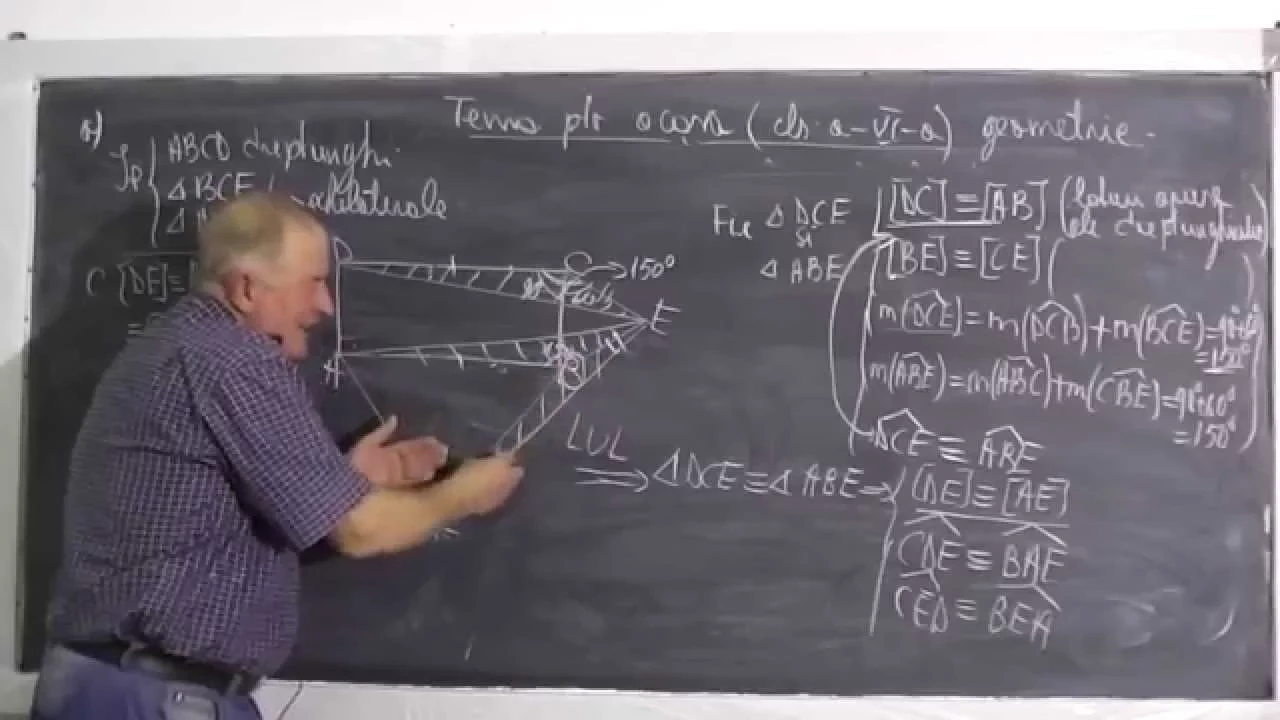 Tema ptr acasă (cls. a-VI-a) geometrie.
a)
Ip ABCD dreptunghi.
△ BCE
△
echilaterale
C [DE] ≡
=
D
C
→150°
E
A
B
Fie △ DCE
și
△ ABE
[DC] ≡ [AB] (laturi opuse
ale dreptunghiului)
[BE] ≡ [CE] ( )
m(DCE) = m(DCB) + m(BCE) = 90°+60°
= 150°
m(ABE) = m(ABC) + m(CBE) = 90°+60°
= 150°
DCE ≡ ABE
LUL
⟹ △DCE ≡ △ ABE ⇒ [DE] ≡ [AE]
CDE ≡ BAE
CED ≡ BEA